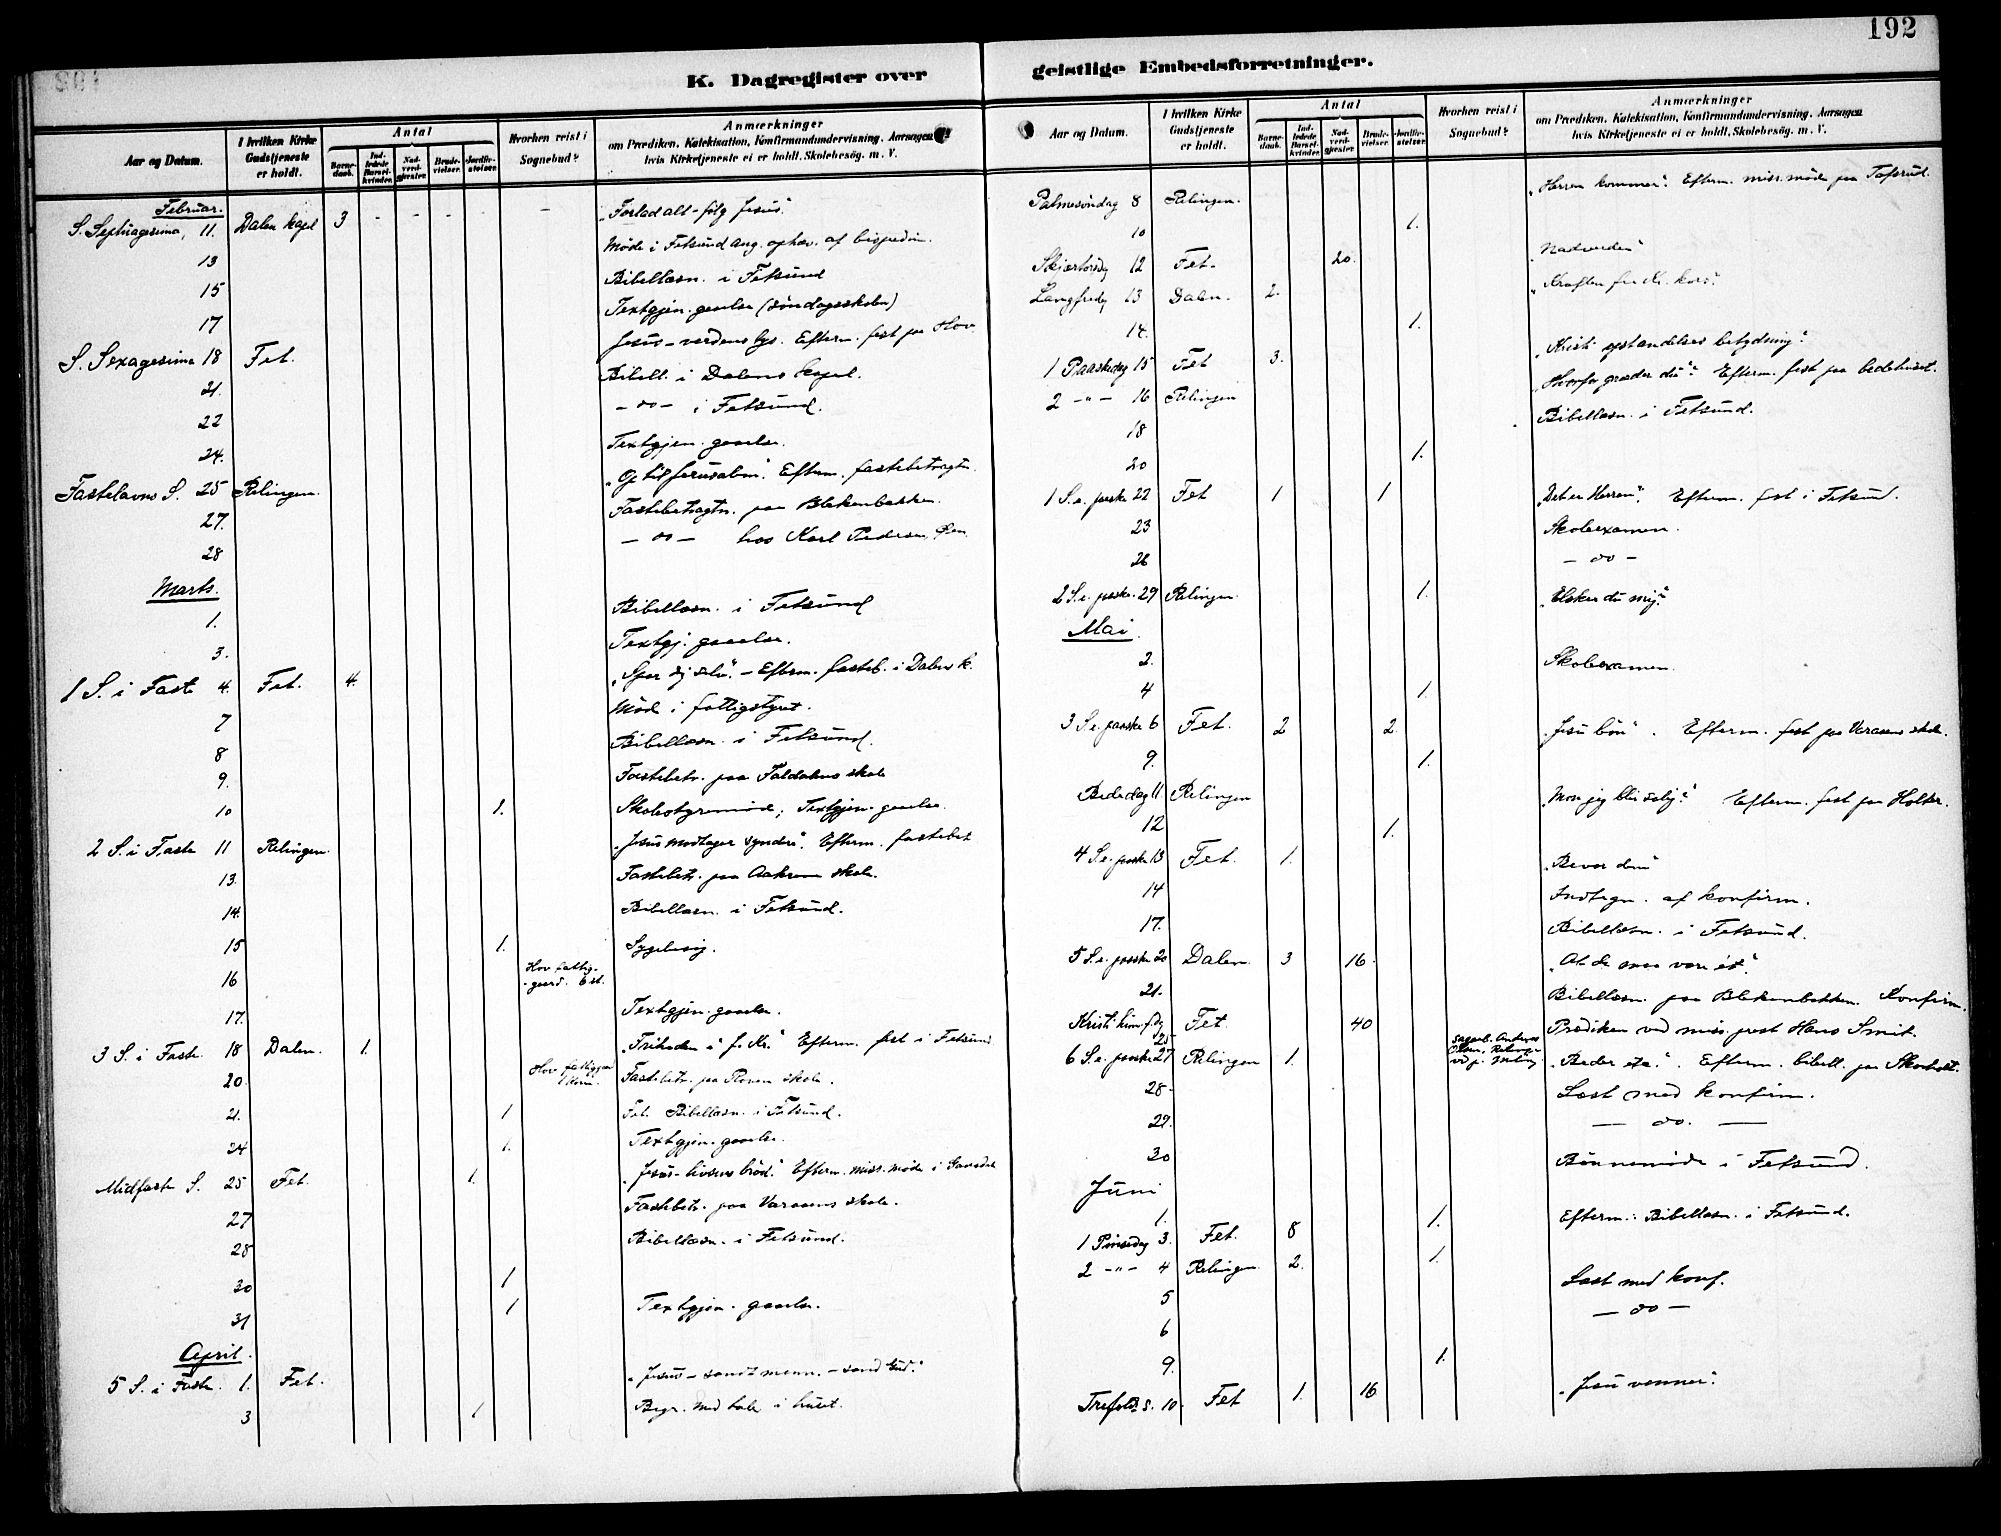 192
K. Dagregister over
geistlige Embedsforretninger.
Aar og Datum.
I hvilken Kirke Gudstjeneste er holdt.
Antal
Barnedaab.
Indledede Barselkvinder.
Nadverdgjæster.
Brudevielser.
Jordfæstelser.
Hvorhen reist i Sognebud?
Anmærkninger
om Prædiken, Katekisation, Konfirmandundervisning, Aarsagen
hvis Kirketjeneste ei er holdt, Skolebesög, m. V.
Februar.
S. Septuagesima, 11. Dalen kapel 3 - - - - - "Forlad alt - følg Jesus".
13 Møde i Fetsund ang. ophæv. af
15 Bibellæsn. i Fetsund
17 Textgjen. gaaelse (søndagsskolen)
S. Sexagesima 18 Fet. Jesus - verdens lys. Efterm. fest paa Hov
21. Bibell. i Dalens kapel.
22 - do - i Fetsund.
24. Textgjen. gaaelse.
Fastelavns S. 25 Relingen. Efterm. fastebetragtn.
27. Fastebetragtn. paa Blekenbakken.
28 - do - hos Karl Pedersen
Marts.
1. Bibellæsn. i Fetsund
3. Textgj. gaaelse.
1 S. i Faste 4. Fet. 4. - Efterm. fasteb. i Dalens k.
7 Møde i fattigstyret.
8 Bibellæsn. i Fetsund.
9. Fastebetr. paa Faldalens skole
10 1. Skolestyremøde; Textgjen. gaaelse.
2 S. i Faste 11 Relingen. "Jesus modtager syndere". Efterm. fastebet
13. Fastebetr. paa skole.
14. Bibellæsn. i Fetsund.
15 1. Sygebesøg.
16 Hov fattig-
gaard.
17. Textgjen. gaaelse.
3 S. i Faste 18 Dalen. 1. Efterm. fest i Fetsund
20. Hov fattiggaard Fastebetr. paa skole.
21. 1 Fet. Bibellæsn. i Fetsund.
24 1. Textgjen. gaaelse.
Midfaste S. 25 Fet. 1. "Jesus - livsens brød". Efterm. miss. møde i
27 Fastebetr. paa Varaaens skole.
28 Bibellæsn. i Fetsund.
30 1
31 1 Textgjen. gaaelse.
April.
5 S. i Faste. 1. Fet. "Jesus - sandt menn. - sand Gud."
3 1 Begr. med tale i huset.
Aar og Datum.
I hvilken Kirke Gudstjeneste er holdt.
Antal
Barnedaab.
Indledede Barselkvinder.
Nadverdgjæster.
Brudevielser.
Jordfæstelser.
Hvorhen reist i Sognebud?
Anmærkninger
om Prædiken, Katekisation, Konfirmandundervisning, Aarsagen
hvis Kirketjeneste ei er holdt, Skolebesög, m. V.
Palmesøndag 8 Relingen. "Herren kommer". Efterm. miss. møde paa
10 1.
Skjærtorsdg 12 Fet. 20. Nadverden"
Langfredg 13 Dalen. 2. "Kraften
14. 1.
1 Paaskedag 15 Fet 3. "Kristi opstandelses betydning".
2 - " - 16 Relingen "Hvorfor græder du". Efterm. fest paa bedehuset.
18 Bibellæsn. i Fetsund.
20 1.
1 S. e. paaske 22 Fet 1 1 "Det er Herren". Efterm. fest i Fetsund.
23 Skoleexamen.
26 - do -
2 S. e. paaske. 29 Relingen. 1. "Elsker du mig".
Mai.
2. Skoleexamen.
4 1.
3 S. e. paaske 6 Fet. 2 2. "Jesu bøn". Efterm. fest paa Varaaens skole.
9. 1.
Bededag 11 Relingen "Mon jeg blir salig". Efterm. fest paa Holter.
12 1.
4 S. e. paaske 13 Fet. 1. "Bevar dem"
14 Indtegn. af konfirm.
17. Bibellæsn. i Fetsund.
5 S. e. paaske 20 Dalen 3 16. "At de maa være ét".
21. Bibellæsn. paa Blekenbakken. Konfirm.
Kristi him. f. dg 25 Fet. 40 Prædiken ved miss. prest Hans Smit.
6 S. e. paaske 27 Relingen 1. "Beder etc." Efterm. bibell. paa
28. Læst med konfirm.
29. - do. -
30 Bønnemøde i Fetsund.
Juni
1. 1. Efterm.: Bibellæsn. i Fetsund.
1 Pinsedag 3. Fet. 8
2 - " - 4 Relingen. 2. 1.
5 Læst med konf.
6 - do -
9. 1.
Trefold. s. 10. Fet 1. 16 "Jesu venner".